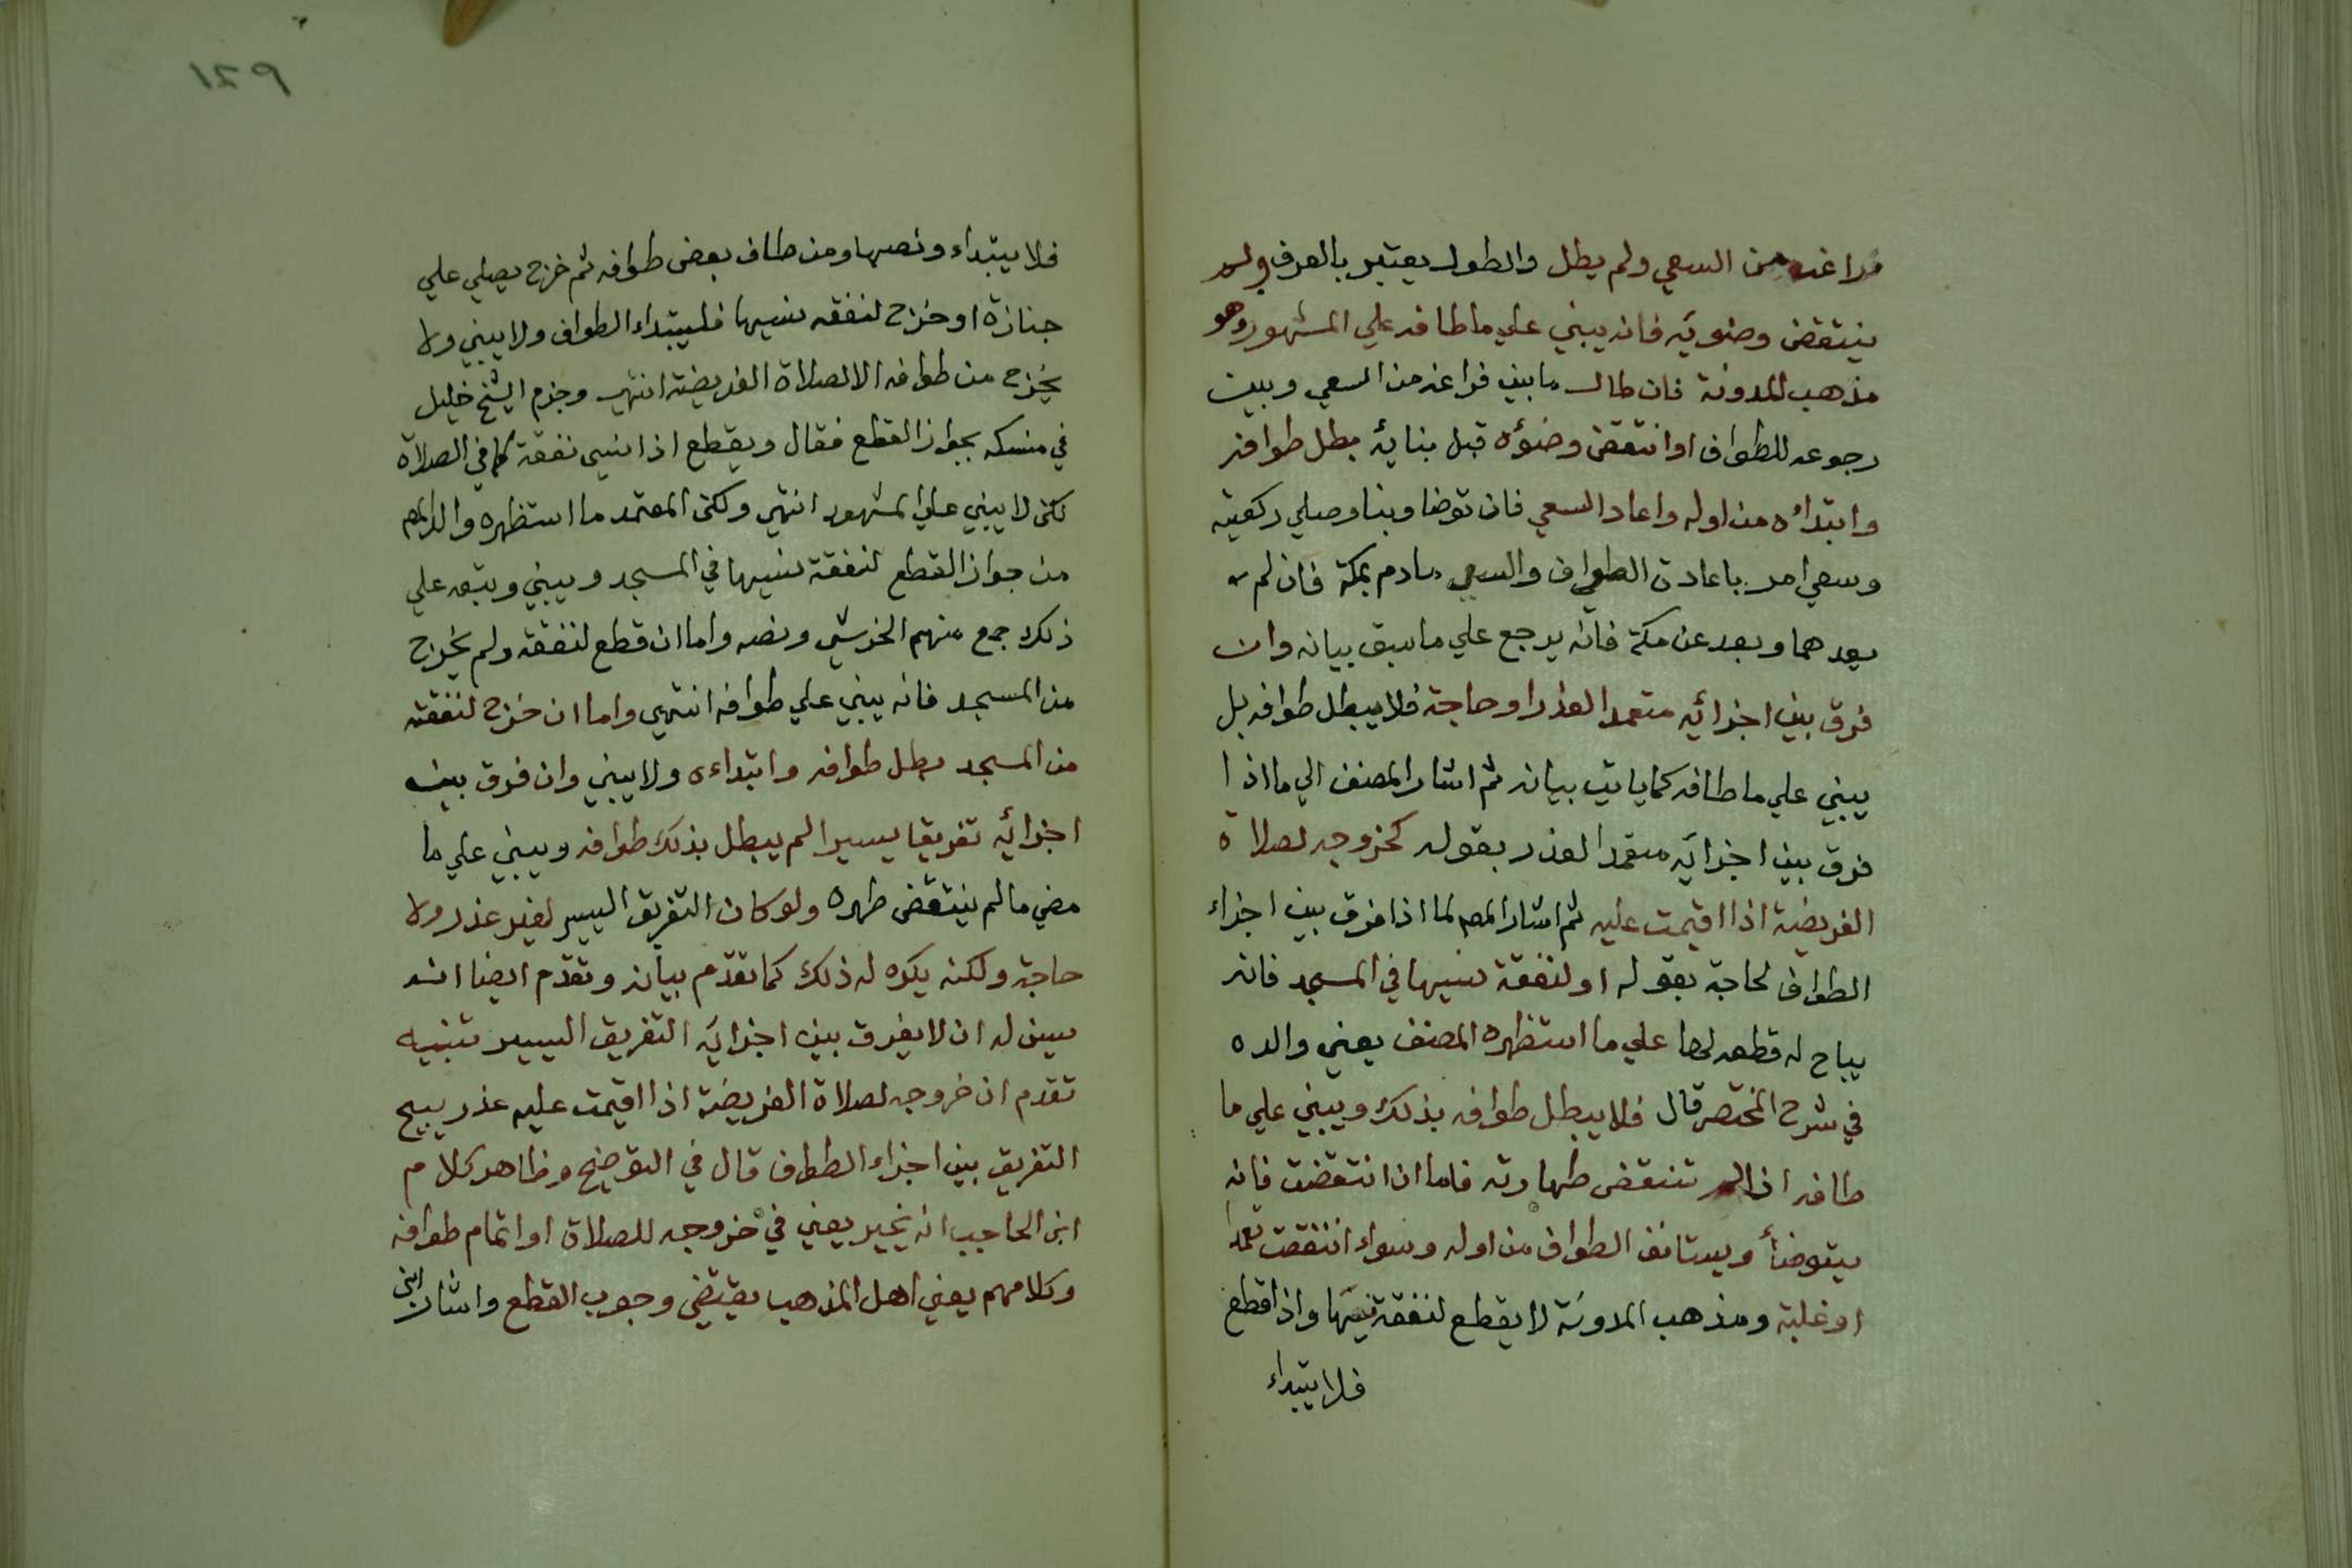 فراغه من السعي ولم يطل والطول يعتبر بالعرف ولم
ينتقض وضويه فانه يبني علي ما طافه علي المشهور وهو
مذهب المدونة فان طال ما بين فراغه من السعي وبين
رجوعه للطواف او انتقض وضؤه قبل بنايه بطل طوافه
وابتداه من اوله واعاد السعي فان توضا وبنا وصلي ركعتيه
وسعي امر باعادة الطواف والسعي مادم بمكة فان لم
يعدهما وبعد عن مكة فانه يرجع علي ما سبق بيانه وان
فرق بين اجزائه متعمدا لعذر او حاجة فلا يبطل طوافه بل
يبني علي ما طافه كما ياتي بيانه ثم اشار المصنف الي ما اذا
فرق بين اجزايه متعمدا لعذر بقوله كخروجه لصلاة
الفريضة اذا اقيمت عليه ثم اشار المص لما اذا فرق بين اجزاء
الطواف لحاجة بقوله او لنفقة نسيها في المسجد فانه
يباح له قطعه لها علي ما استظهره المصنف يعني والده
في شرح المختصر قال فلا يبطل طوافه بذلك ويبني علي ما
طافه اذا لم تنتقض طهارته فاما ان انتقضت فانه
يتوضأ ويستانف الطواف من اوله وسواء انتقضت تعمدا
او غلبة ومذهب المدونة لا يقطع لنفقة نسيها واذا قطع
فلا يبتداء
١٤٩
فلا يبتداء ونصها ومن طاف بعض طوافه ثم خرج يصلي علي
جنازة او خرج لنفقه نسيها فليبتداء الطواف ولا يبني ولا
يخرج من طوافه الا لصلاة الفريضة انتهي وجزم الشيخ خليل
في منسكه بجواز القطع فقال ويقطع اذا نسي نفقة كما في الصلاة
لكن لا يبني علي المشهور انتهي ولكن المعتمد ما استظهره والد المص
من جواز القطع لنفقة نسيها في المسجد ويبني وتبعه علي
ذلك جمع منهم الخرشي ونصه واما ان قطع لنفقة ولم يخرج
من المسجد فانه يبني علي طوافه انتهي واما ان خرج لنفقته
من المسجد بطل طوافه وابتداءه ولا يبني وان فرق بين
اجزائه تفريقا يسيرا لم يبطل بذلك طوافه ويبني علي ما
مضي ما لم ينتقض طهره ولو كان التفريق اليسير لغير عذر ولا
حاجة ولكنه يكره له ذلك كما تقدم بيانه وتقدم ايضا انه
يسن له ان لا يفرق بين اجزايه التفريق اليسير تنبيه
تقدم ان خروجه لصلاة الفريضة اذا اقيمت عليه عذر يبيح
التفريق بين اجزاء الطواف قال في التوضيح وظاهر كلام
ابن الحاجب انه يخير يعني في خروجه للصلاة او اتمام طوافه
وكلامهم يعني اهل المذهب يقتضي وجوب القطع واشار ابن